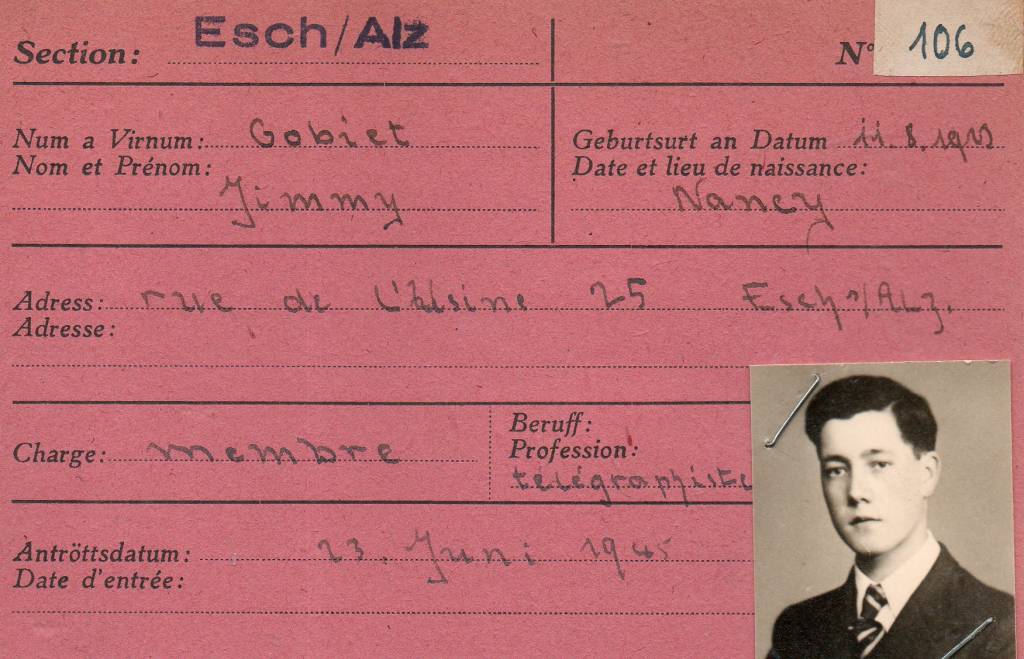 Section: Esch/Alz N° 106
Num a Virnum: Gobiet
Nom et Prénom:
Jimmy
Geburtsurt an Datum 11.8.
Date et lieu de naissance:
Nancy
Adress: rue de L'Usine 25 Esch s/Alz.
Adresse:
Charge: membre
Beruff:
Profession:
télégraphiste
Antröttsdatum: 23. Juni 1945
Date d'entrée: